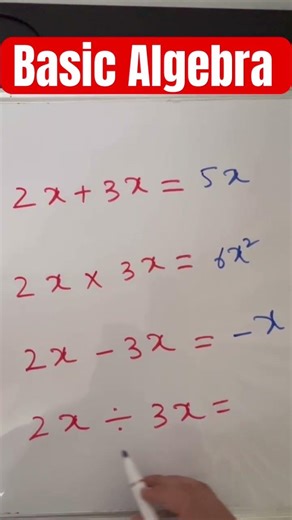 Basic Algebra
2x + 3x = 5x
2x × 3x = 6x²
2x - 3x = -x
2x ÷ 3x =